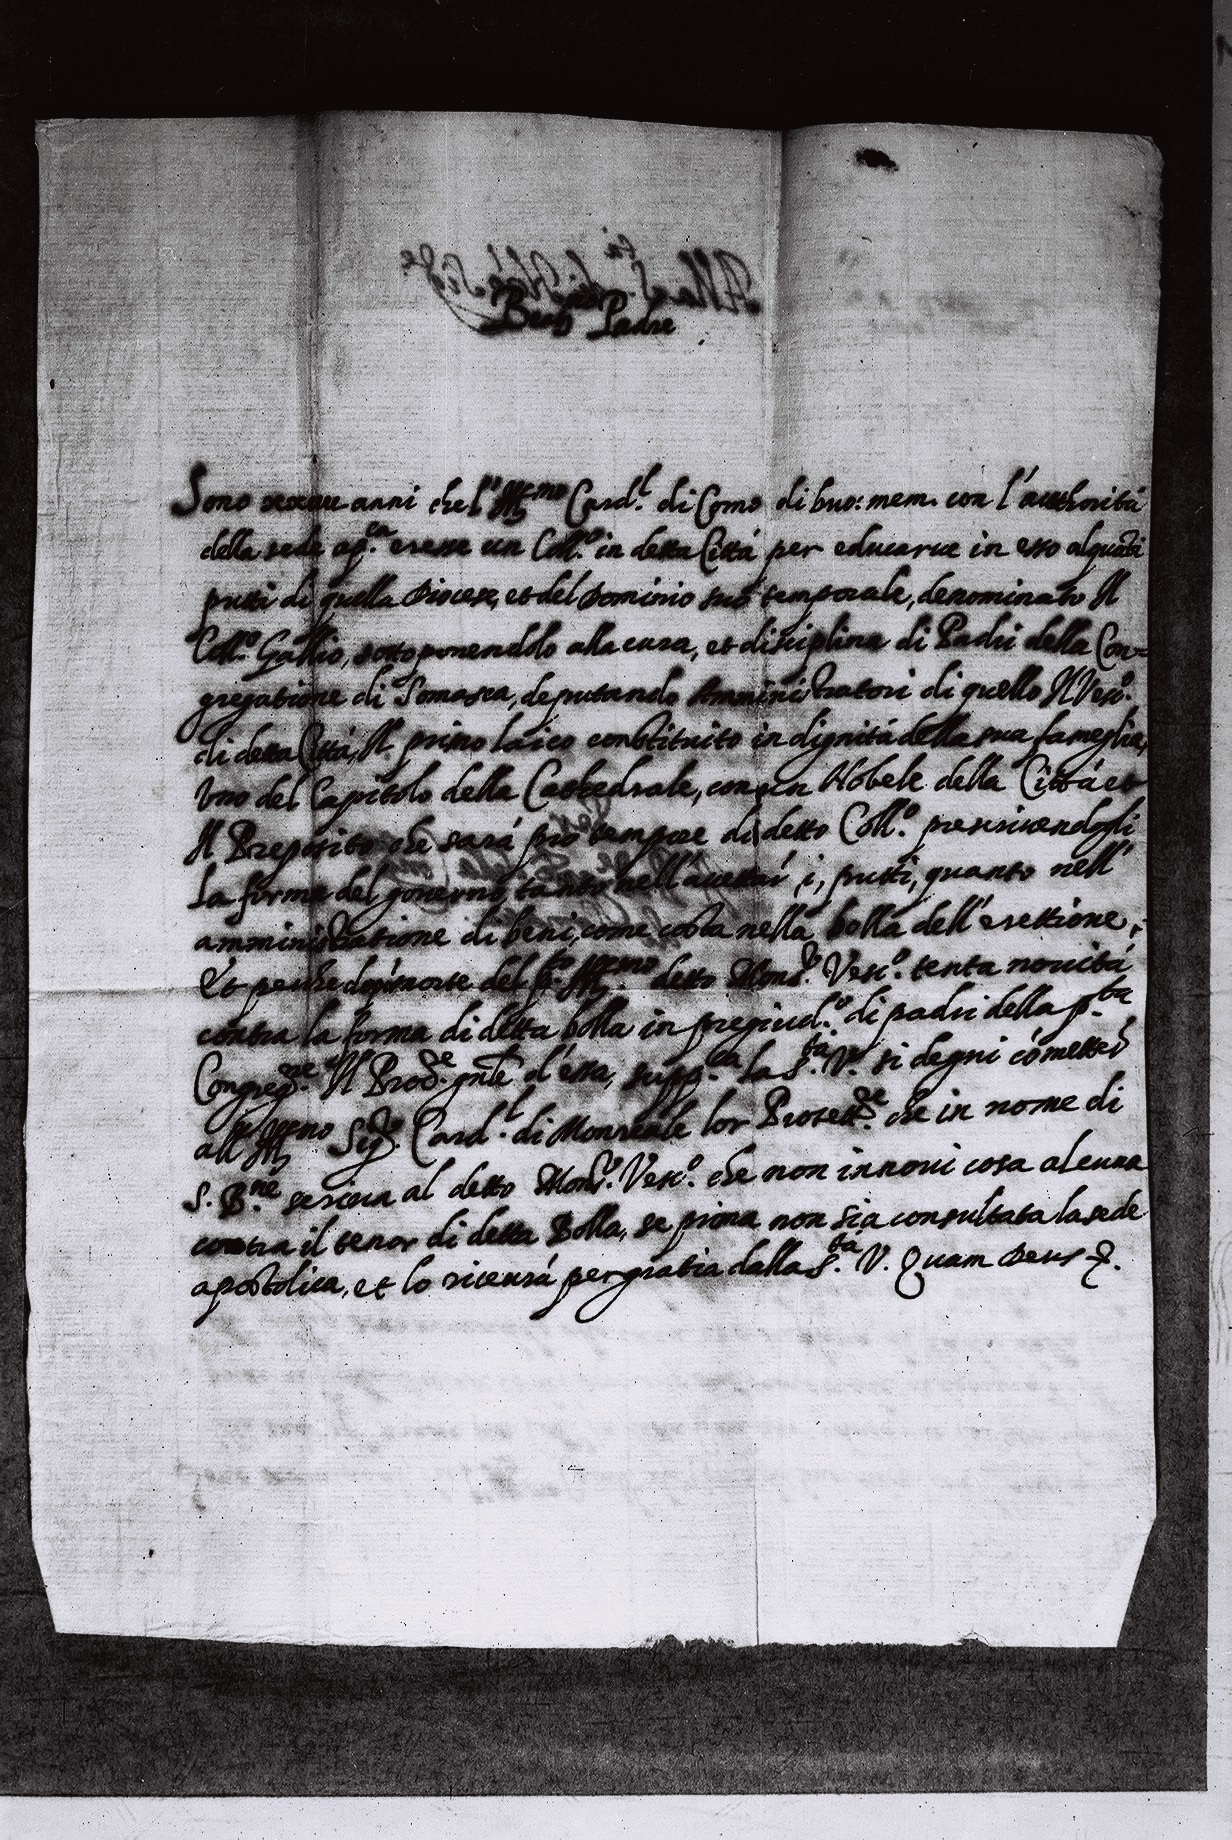 Beat.mo Padre
Sono anni che l' Ill.mo Card.l di Como di buo: mem. con l'authorità
della sede ap.ca eresse un Coll.o in detta Città per educarue in esso alquāti
putti di quella Diocese, et del Dominio suo temporale, denominato Il
Coll.o Gallio, sottoponendolo alla cura, et disciplina di Padri della Con=
gregatione di Somasca, deputando Amministratori di quello Il Vesc.o
di detta Città, Il primo laico constituito in dignità della sua fameglia,
Uno del Capitolo della Cathedrale, con un Nobele della Città et
Il Preposito che sarà pro tempore di detto Coll.o prescriuendogli
La forma del gouerno, tanto nell'accettar i, putti, quanto nell'
amministratione di beni, come costa nella bolla dell'erettione,
Et perche dopò morte del p.to Ill.mo detto Mons.r Vesc.o tenta nouità
contra la forma di detta bolla in pregiud.o di padri della p.ta
Congreg.ne Il Proc.re gnle d'essa, supp.ca la S.tà V. si degni cōmetter
all' Ill.mo Sig.r Card.l di Monreale lor Protett.re che in nome di
S. B.ne scriua al detto Mons.r Vesc.o che non innoui cosa alcuna
contra il tenor di detta Bolla, se prima non sia consultata la sede
apostolica, et lo riceuerà per gratia dalla S.tà V. Quam Deus &.